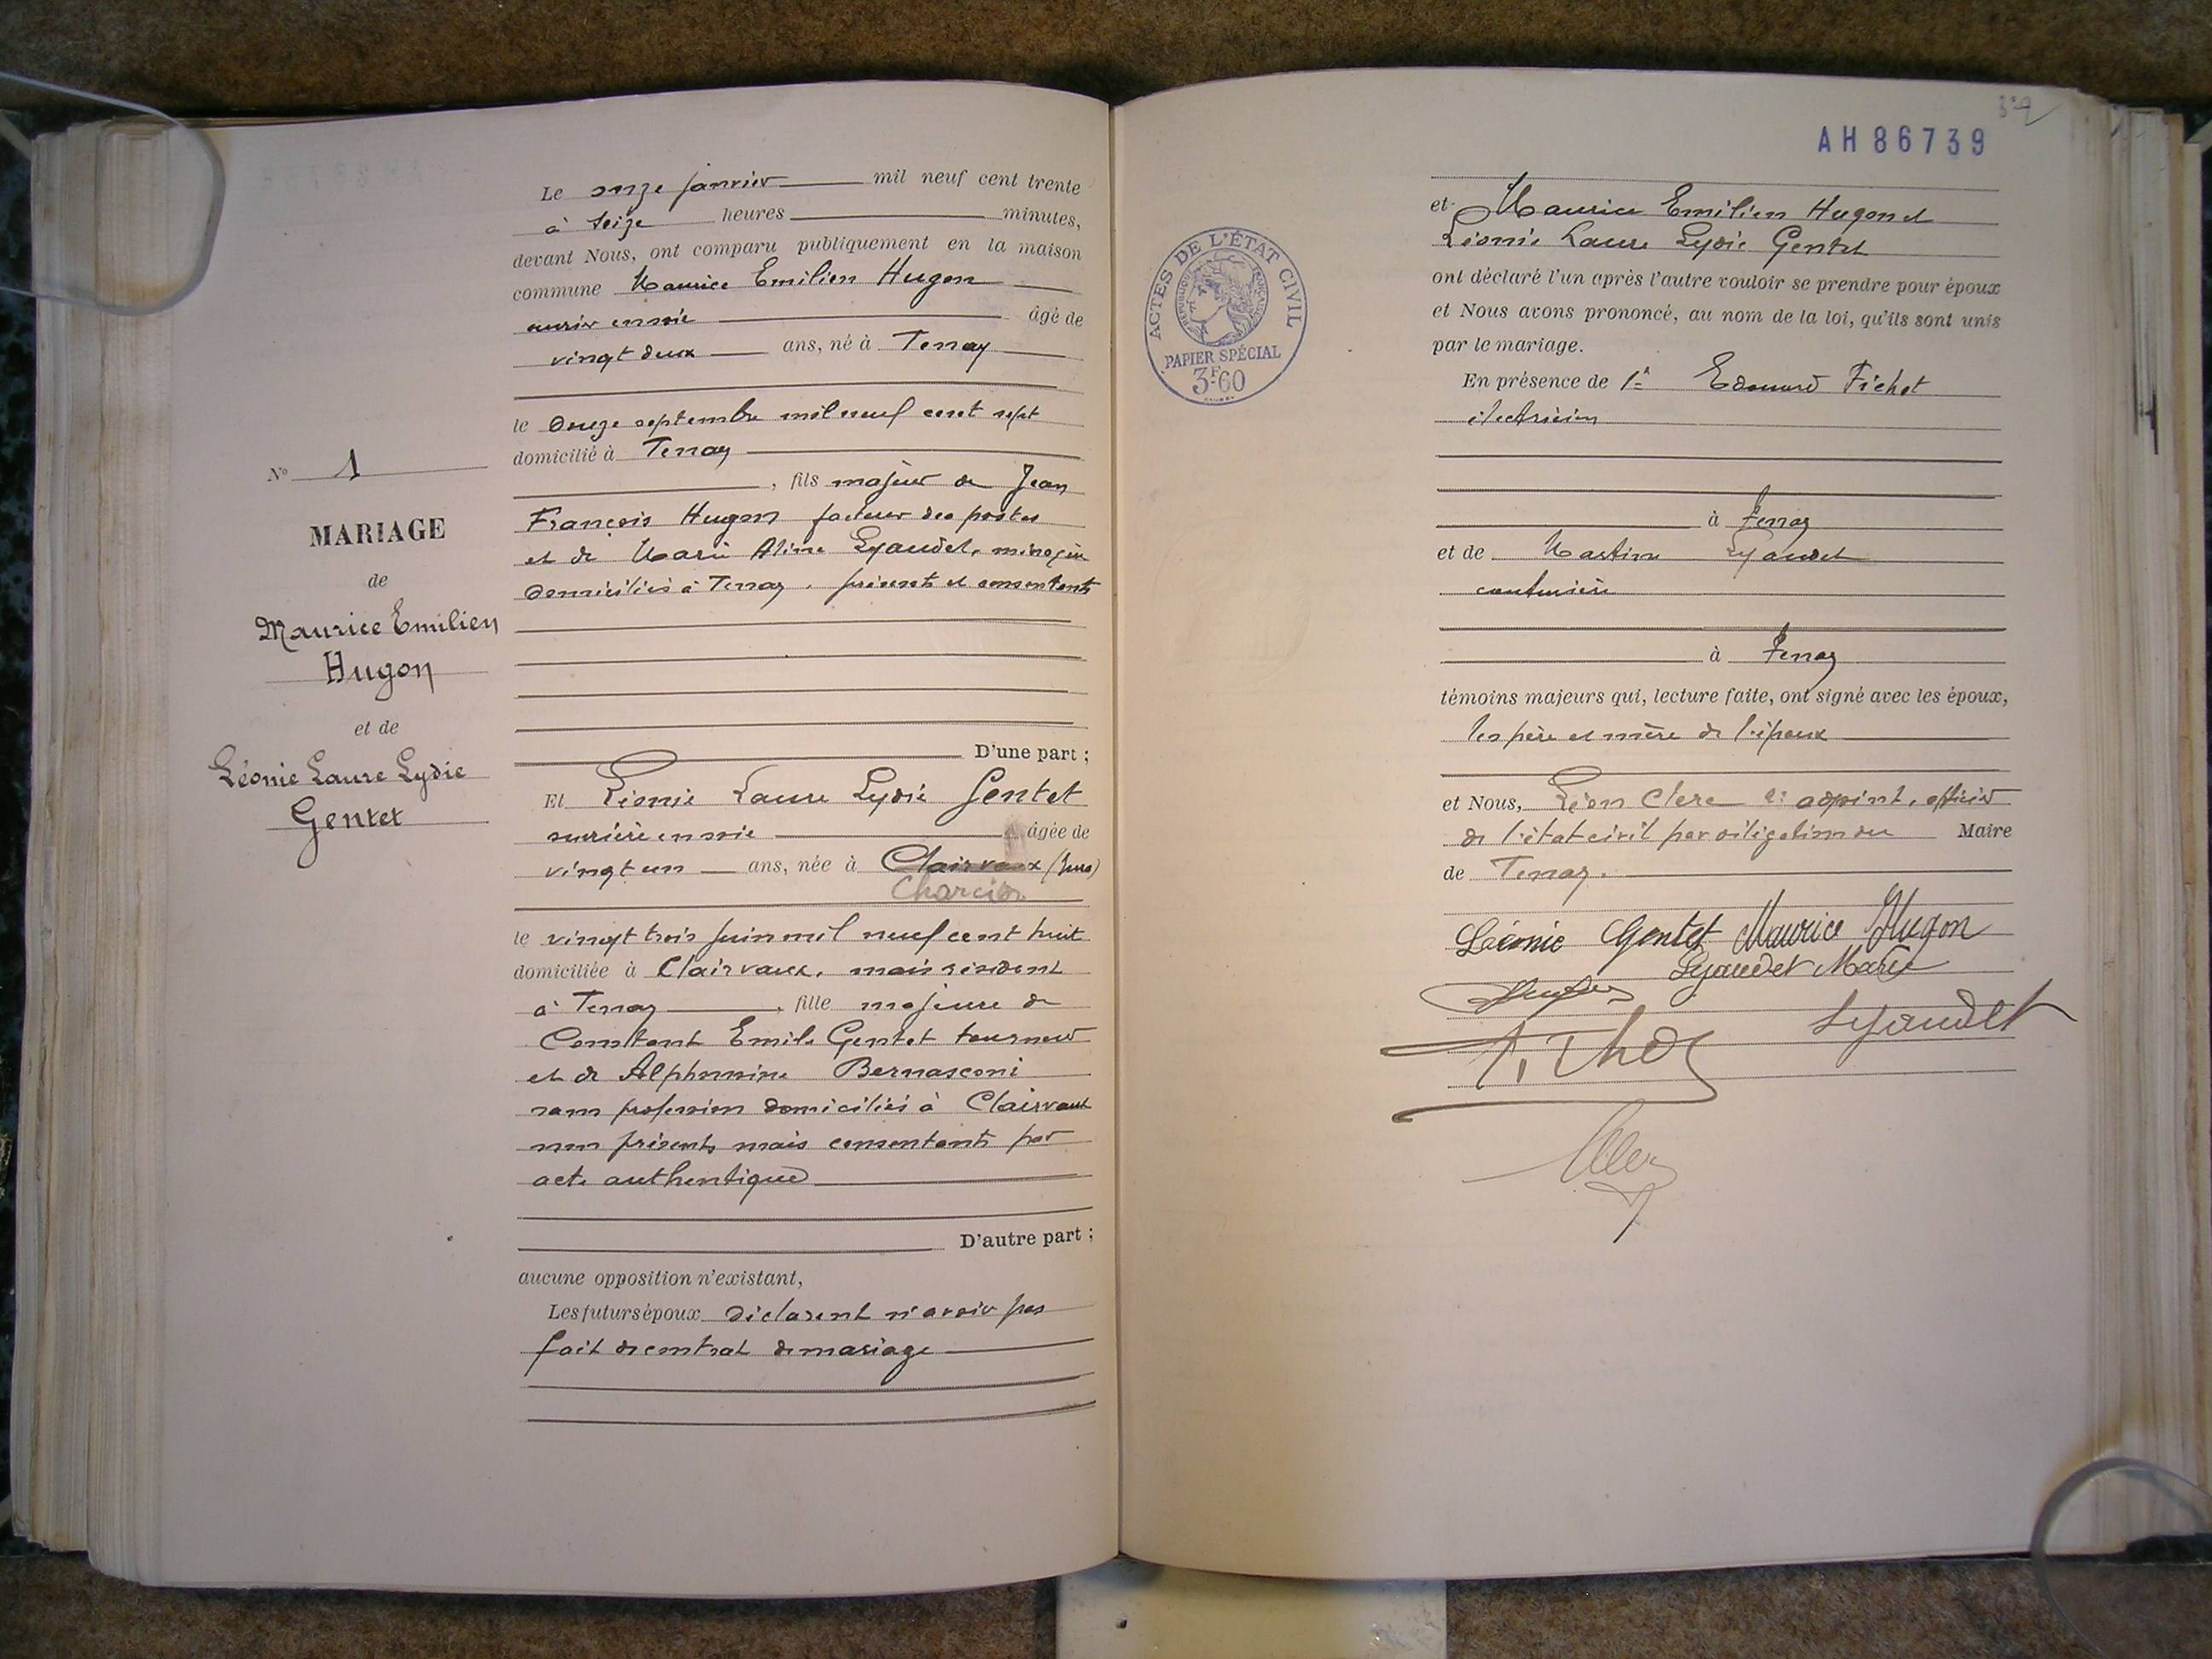 Le onze janvier mil neuf cent trente
à seize heures minutes,
devant Nous, ont comparu publiquement en la maison
commune Maurice Emilien Hugon
ouvrier en soie âgé de
vingt deux ans, né à Tenay
le douze septembre mil neuf cent sept
domicilié à Tenay
, fils majeur de Jean
François Hugon facteur des postes
et de Marie Aline Lyaudet, ménagère
domiciliés à Tenay, présents et consentants
D'une part ;
Et Léonie Laure Lydie Gentet
ouvrière en soie âgée de
vingt un ans, née à Clairvaux (Jura)
Charcier
le vingt trois juin mil neuf cent huit
domiciliée à Clairvaux, mais résident
à Tenay, fille majeure de
Constant Emile Gentet tourneur
et de Alphonsine Bernasconi
sans profession domiciliés à Clairvaux
non présents mais consentants par
acte authentique
D'autre part ;
aucune opposition n'existant,
Les futurs époux déclarent n'avoir pas
fait de contrat de mariage
N° 1
MARIAGE
de
Maurice Emilien
Hugon
et de
Léonie Laure Lydie
Gentet
AH 86739
ACTES DE L'ÉTAT CIVIL
RÉPUBLIQUE FRANÇAISE
PAPIER SPÉCIAL
3F60
et Maurice Emilien Hugon et
Léonie Laure Lydie Gentet
ont déclaré l'un après l'autre vouloir se prendre pour époux
et Nous avons prononcé, au nom de la loi, qu'ils sont unis
par le mariage.
En présence de Edouard Fichet
électricien
à Tenay
et de Lyaudet
couturière
à Tenay
témoins majeurs qui, lecture faite, ont signé avec les époux,
les père et mère de l'époux
et Nous, Léon Clerc adjoint, officier
de l'état civil par délégation du Maire
de Tenay.
Léonie Gentet Maurice Hugon
Lyaudet Marie
Lyaudet